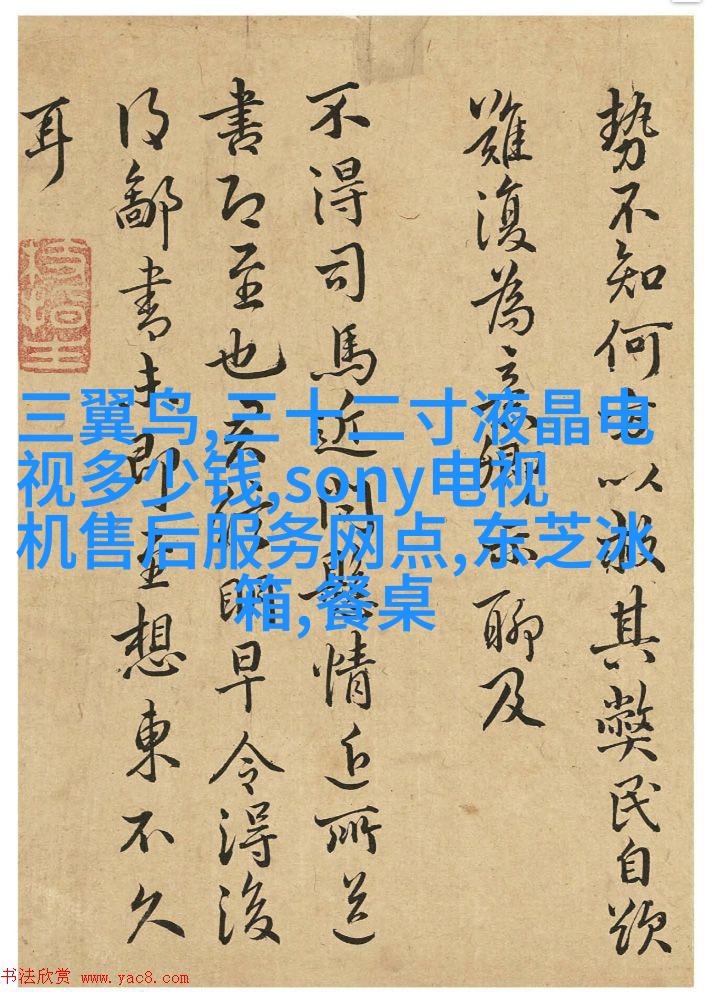 勢不知何以救其弊民自
難復為意卿示聊及
不得司馬近問懸情近所送
書即至也明早令得後
得鄱書未即至想東不久
耳
三翼鸟,三十二寸液晶电
视多少钱,sony电视
机售后服务网点,东芝冰
箱,餐桌
书法欣赏 www.yac8.com